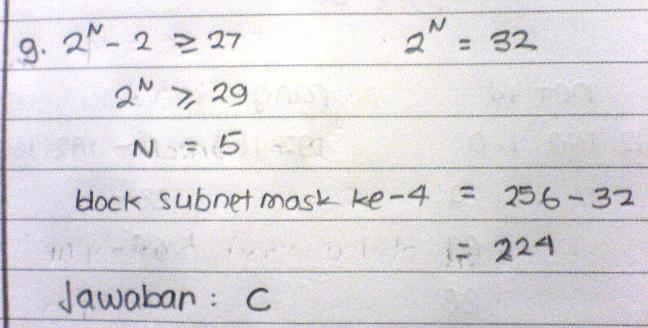 9. 2^N - 2 ≥ 27 2^N = 32
2^N ≥ 29
N = 5
block subnet mask ke-4 = 256 - 32
= 224
Jawaban : C